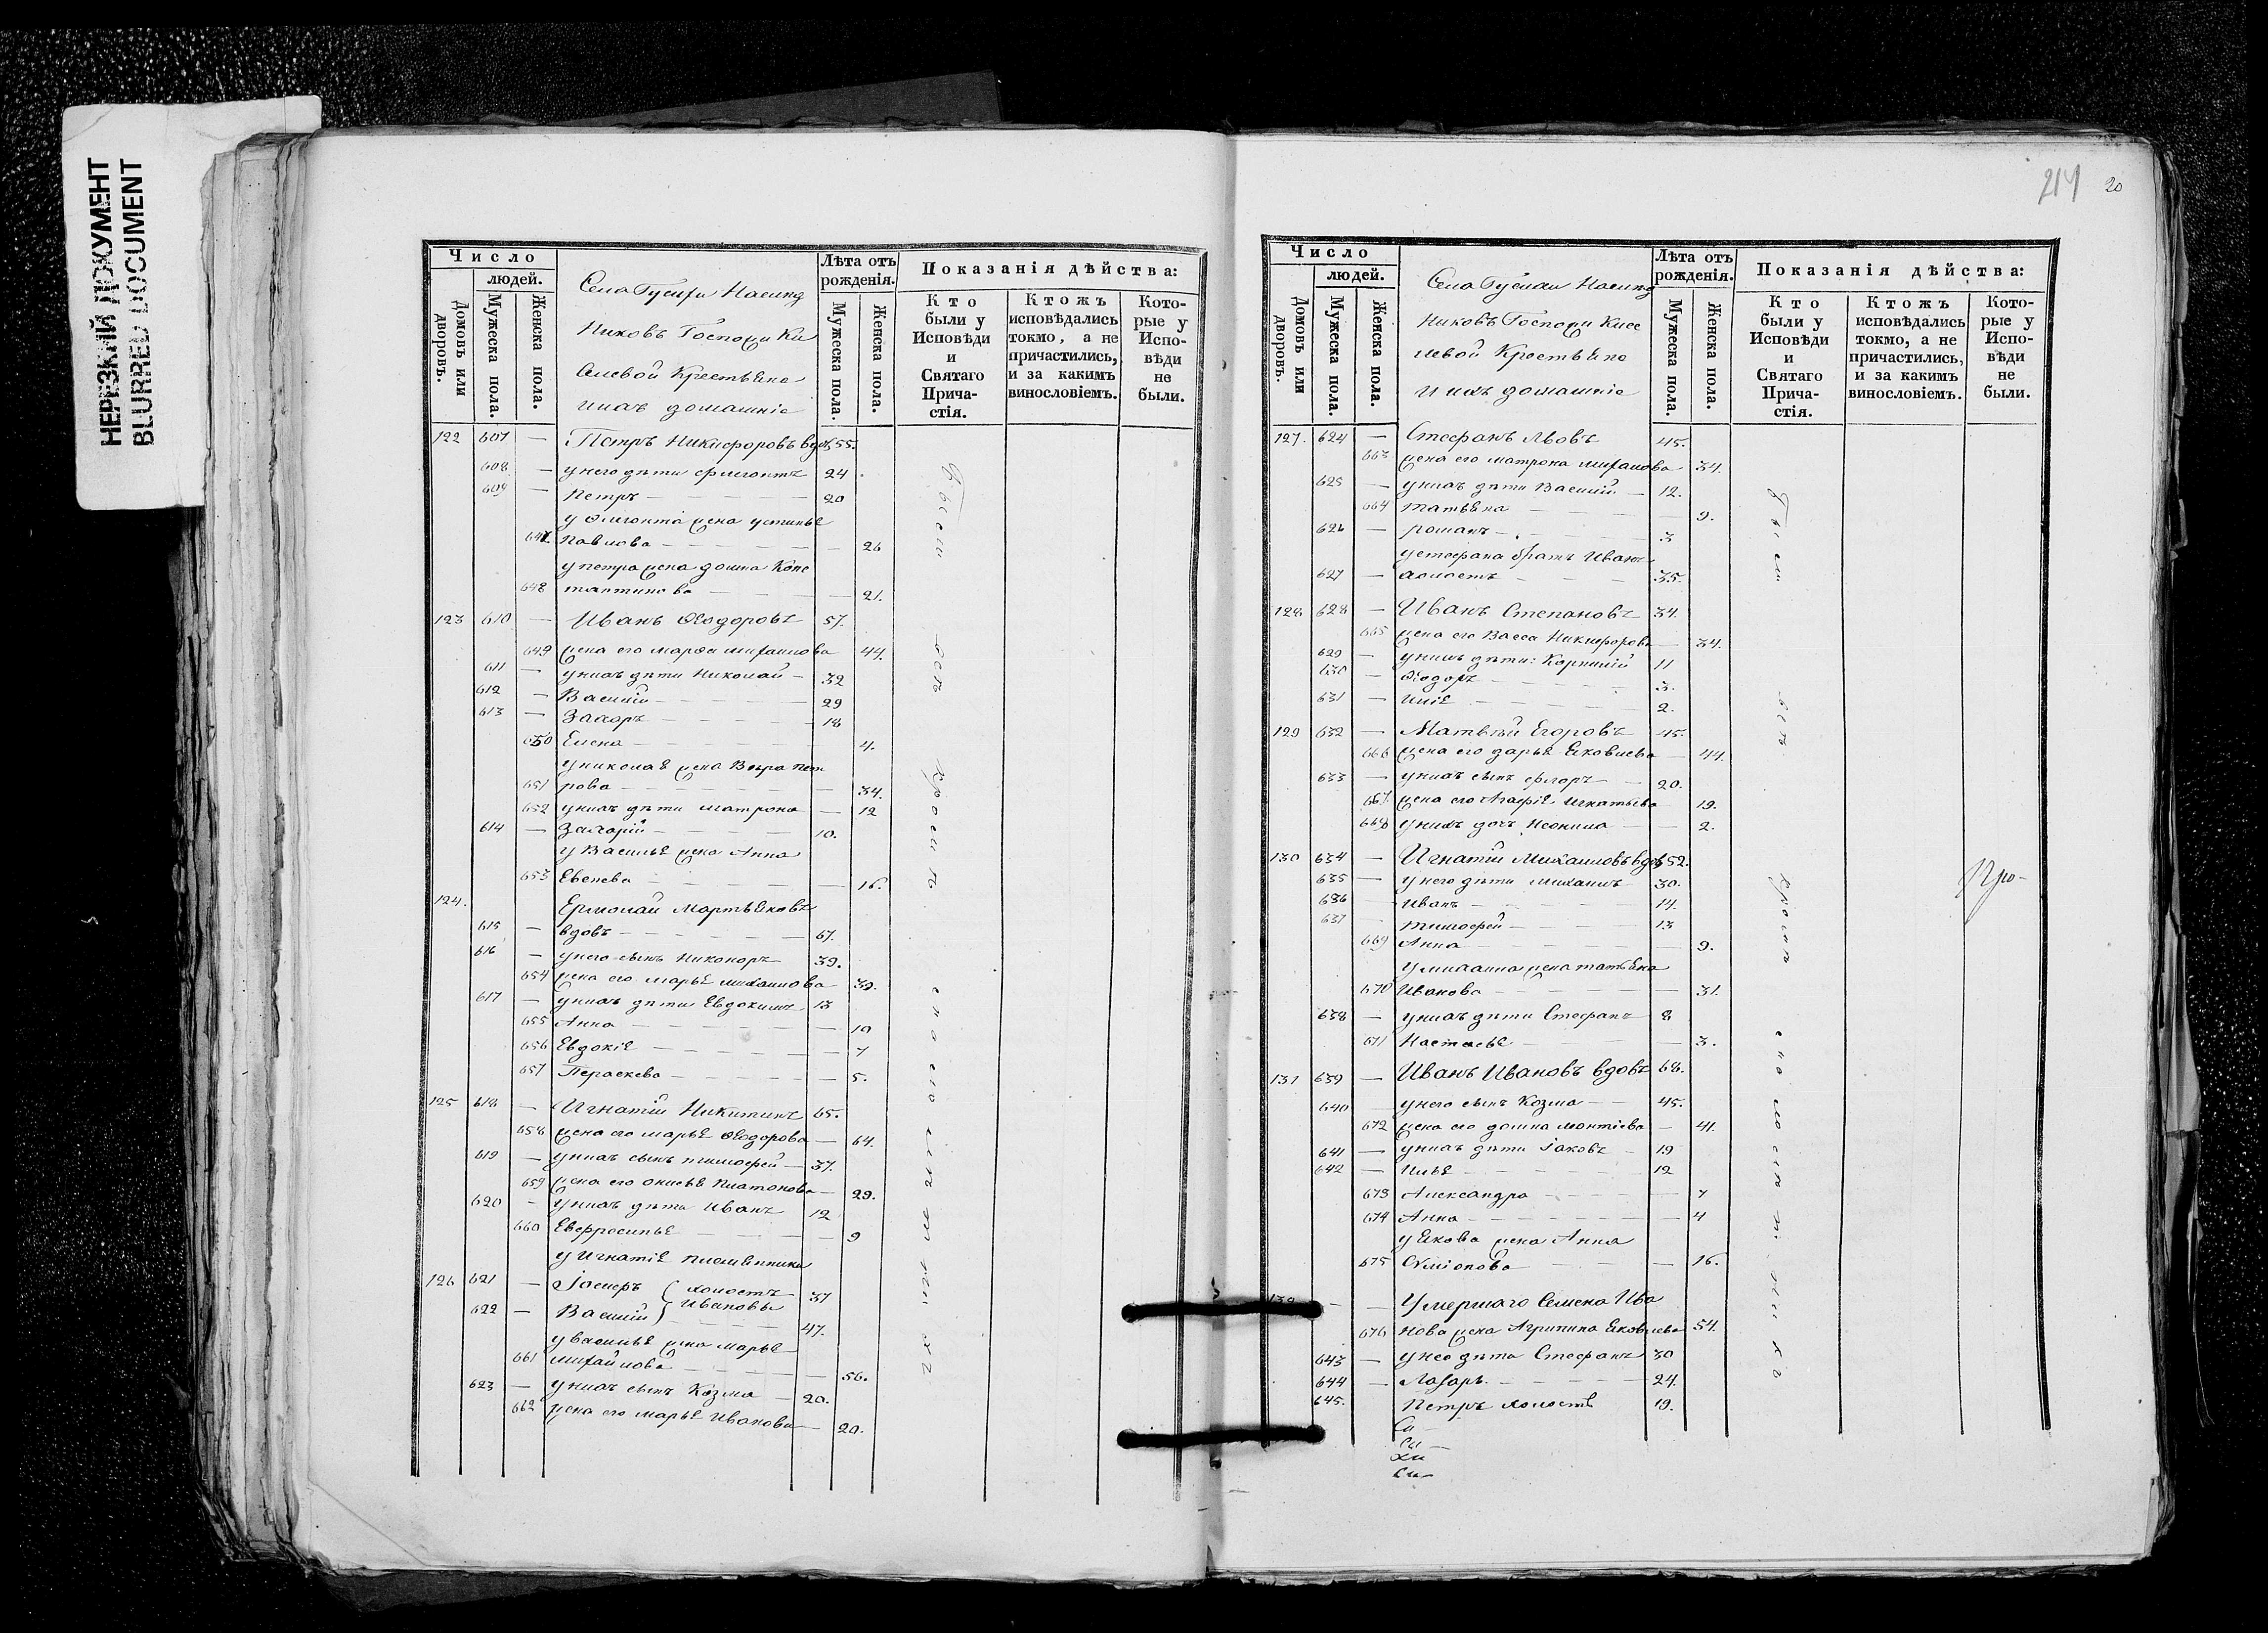 НЕРЕЗКИЙ ДОКУМЕНТ
BLURRED DOCUMENT
Число
людей.
Домовъ или дворовъ.
Мужеска пола.
Женска пола.
Села Насѣлд
никовъ Господи Ки
селевой Крестьяне
ихъ домашніе
Лѣта отъ рожденія.
Мужеска пола.
Женска пола.
Показанія дѣйства:
Кто были у Исповѣди и Святаго Причастія.
Ктожъ исповѣдались токмо, а не причастились, и за какимъ винословіемъ.
Которые у Исповѣди не были.
122 607 — Петръ Никифоровъ вдов. 55.
608 — у него дѣти Флегонтъ 24
609 — Петръ — 20
у Флегонта жена Устинья
647 Павлова — 26
у Петра жена Домна Конс
648 тантинова — 21.
123 610 — Иванъ Ѳеодоровъ 57.
649 жена его Марѳа Михаилова 44.
611 — у нихъ дѣти Николай — 32
612 — Василій — 29
613 — Захаръ — 18
650 Елена — 4.
у Николая жена Вѣра Пет
651 рова — 34.
652 у нихъ дѣти Матрона — 12
614 — Захарій — 10.
у Василья жена Анна
653 Евсеева — 16.
124. Ермолай Мартьяновъ
615 — вдовъ — 67.
616 — у него сынъ Никоноръ 39.
654 жена его Марья Михаилова 39.
617 — у нихъ дѣти Евдокимъ 13
655 Анна — 10
656 Евдокія — 7
657 Параскева — 5.
125 618 — Игнатій Никитинъ 65.
658 жена его Марья Ѳеодорова — 64.
619 — у нихъ сынъ Тимофей — 37.
659 жена его Анисья Платонова — 29.
620 — у нихъ дѣти Иванъ 12
660 Евфросинья — 9
у Игнатія племянники
126 621 — холостъ 37
622 — Василій Ивановы 47.
у Василья жена Марья
661 Михайлова — 56.
623 — у нихъ сынъ Козма — 20.
662 жена его Марья Иванова — 20.
214 20
Число
людей.
Домовъ или дворовъ.
Мужеска пола.
Женска пола.
Села Насѣлд
никовъ Господи Кисе
левой Крестьяне
и ихъ домашніе
Лѣта отъ рожденія.
Мужеска пола.
Женска пола.
Показанія дѣйства:
Кто были у Исповѣди и Святаго Причастія.
Ктожъ исповѣдались токмо, а не причастились, и за какимъ винословіемъ.
Которые у Исповѣди не были.
127. 624 — Стефанъ Львовъ 45.
663 жена его Матрона Михаилова 34.
625 — у нихъ дѣти Василій — 12.
664 Татьяна — 9.
626 — Романъ — 3
у Стефана братъ Иванъ
627 — холостъ — 35.
128 628 — Иванъ Степановъ 34.
665 жена его Васса Никифорова — 34.
629 — у нихъ дѣти: Корнилій 11
630 — Ѳеодоръ — 3.
631 — Илія — 2.
129 632 — Матвѣй Егоровъ 45.
666 жена его Дарья Яковлева — 44.
633 — у нихъ сынъ Флоръ — 20.
667 жена его Агафія Игнатьева 19.
668 у нихъ дочь Неонила — 2.
130 634 — Игнатій Михаиловъ вдовъ 52.
635 — у него дѣти Михаилъ 30.
636 — Иванъ — 14.
637 — Тимофей — 13
669 Анна — 9.
у Михаила жена Татьяна
670 Иванова — 31.
638 — у нихъ дѣти Стефанъ 8
671 Настасья — 3.
131 639 — Иванъ Ивановъ вдовъ 68.
640 — у него сынъ Козма — 45.
672 жена его Домна — 41.
641 — у нихъ дѣти Іаковъ — 19
642 — Илья — 12
673 Александра — 7
674 Анна — 4
у Якова жена Анна
675 Симіонова — 16.
132 — — Умершаго Семена Ива
676 нова жена Агрипина Яковлева 54.
643 — у нее дѣти Стефанъ 30
644 — Лазарь — 24.
645. Петръ холостъ 19.